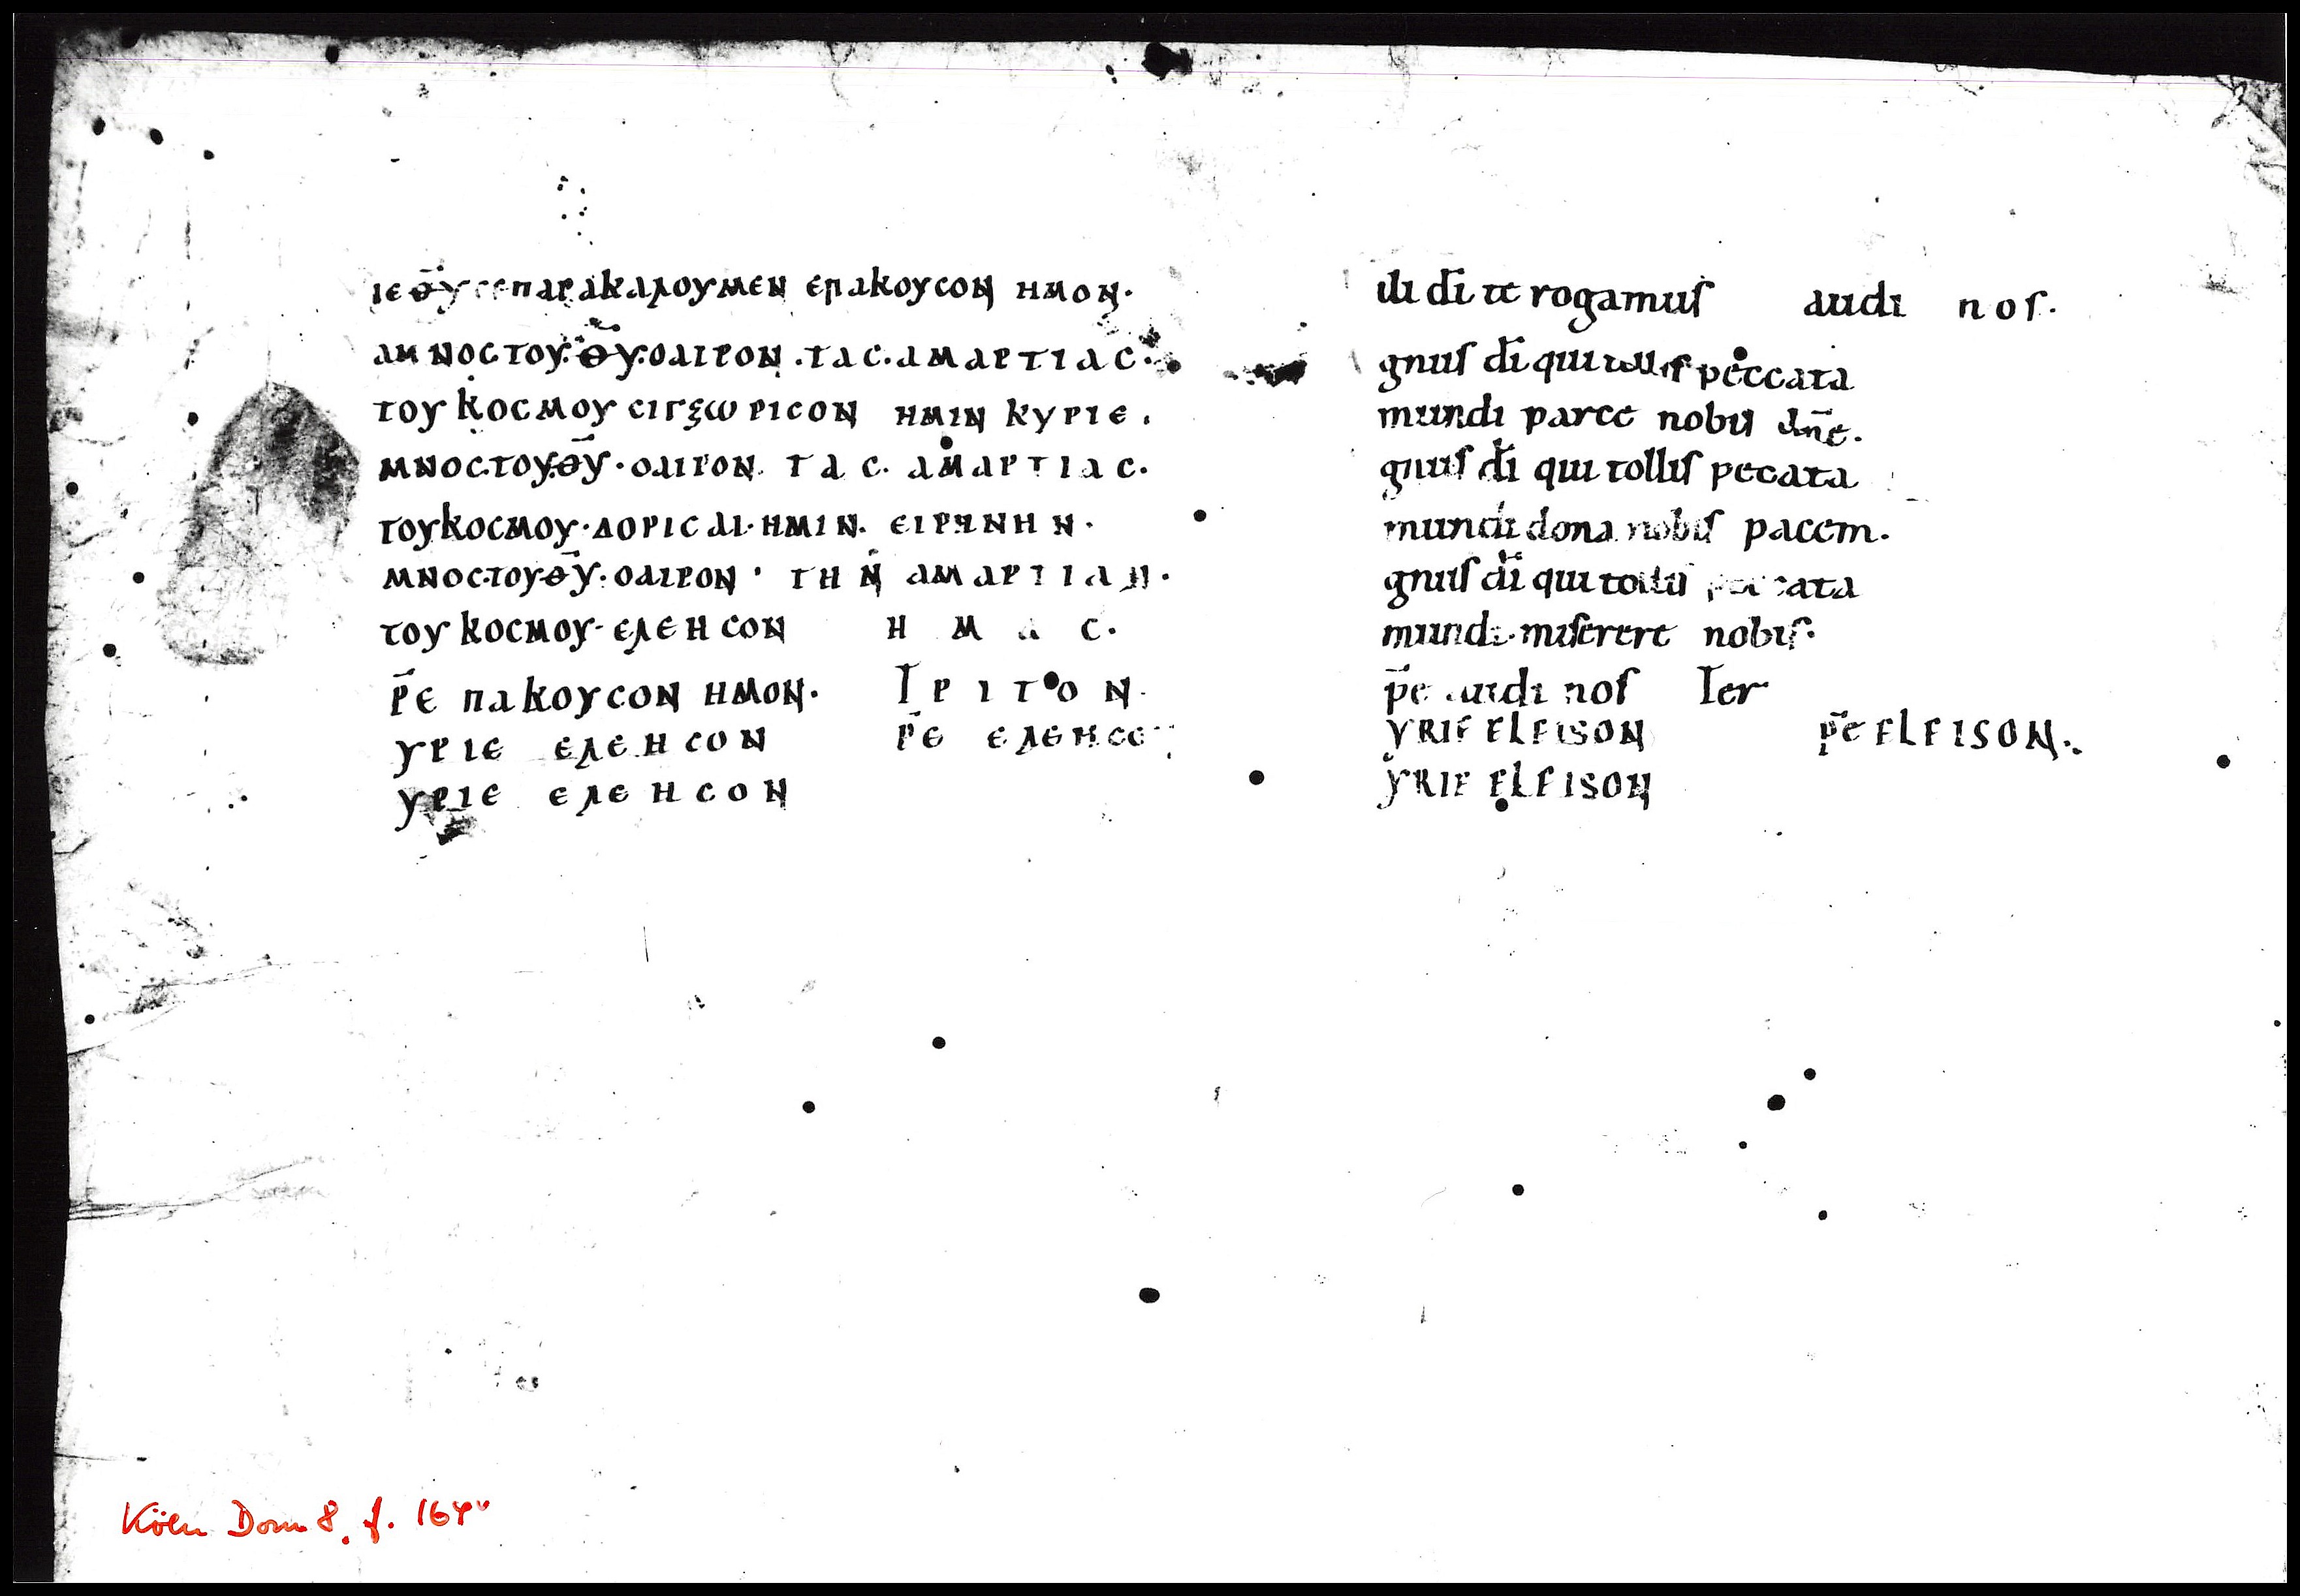 ιε θ̅υ̅ σε παρακαλουμεν επακουσον ημον·
αμνοστου·θ̅υ̅·οαιρον·τας·αμαρτιας·
του κοσμου σιγξωρισον ημιν κυριε·
μνοστουθ̅υ̅·οαιρον τας· αμαρτιας·
τουκοσμου·δορισαι·ημιν· ειρηνην·
μνοστουθ̅υ̅·οαιρον· την αμαρτιαν·
του κοσμου·ελεησον ημας·
ρ̅ε πακουσον ημον· Τριτον
υριε ελεησον ρ̅ε ελεησο
υριε ελεησον
ili di̅ te rogamus audi nos·
gnus di̅ qui tollis peccata
mundi parce nobis dn̅e·
gnus di̅ qui tollis pecata
mundi dona nobis pacem·
gnus di̅ qui tollis peccata
mundi·miserere nobis·
p̅e audi nos Ter
YRIE ELEISON p̅e ELEISON·
YRIE ELEISON
Köln Dom 8, f. 164v